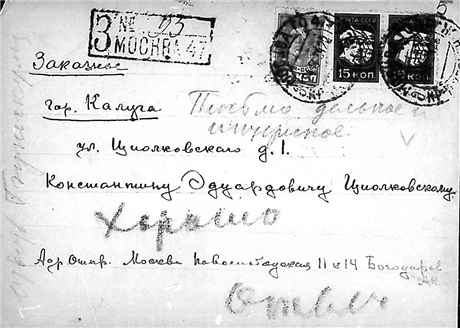 З № 23
МОСКВА 47
ПОЧТА СССР
15 КОП.
Заказное
гор. Калуга
Письмо дальнее и
интересное
ул. Циолковского д. 1.
Константину Эдуардовичу Циолковскому.
Хорошо
Адр. Отпр. Москва Новослободская 11 кв 14 Богодаров
Ответ